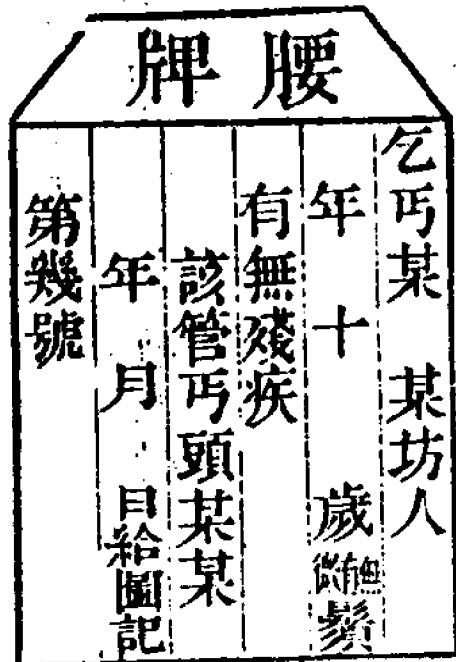 腰牌
乞丐某 某坊人
年 十 歲微有無鬚
有無殘疾
該管丐頭某某
年 月 日給圖記
第幾號